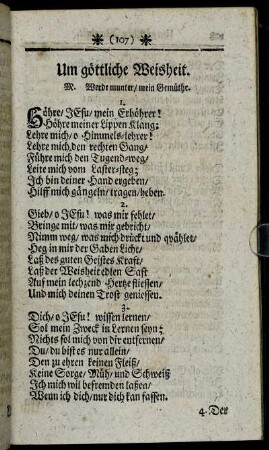 * (107) *
Um göttliche Weisheit.
M. Werde munter/ mein Gemüthe.
1.
Höhre/ JEsu/ mein Erhöhrer!
Höhre meiner Lippen Klang;
Lehre mich/ o Himmels-lehrer!
Lehre mich den rechten Gang/
Führe mich den Tugend-weg/
Leite mich vom Laster-steg;
Ich bin deiner Hand ergeben/
Hilff mich gängeln/ tragen/ heben.
2.
Gieb/ o JEsu! was mir fehlet/
Bringe mit/ was mir gebricht/
Nimm weg/ was mich drückt und qvählet/
Heg in mir der Gaben Licht/
Laß des guten Geistes Krafft/
Laß der Weisheit edlen Safft
Auf mein lechzend Hertze fliessen/
Und mich deinen Trost geniessen.
3.
Dich/ o JEsu! wissen lernen/
Sol mein Zweck in Lernen seyn;
Nichts sol mich von dir entfernen/
Du/ du bist es nur allein/
Den zu ehren keinen Fleiß/
Keine Sorge/ Müh/ und Schweiß
Ich mich wil befremden laßen/
Wenn ich dich/ nur dich kan fassen.
4. Der